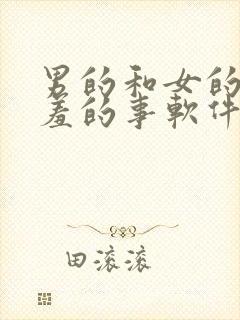 男的和女的
羞的事軟件
田滚滚